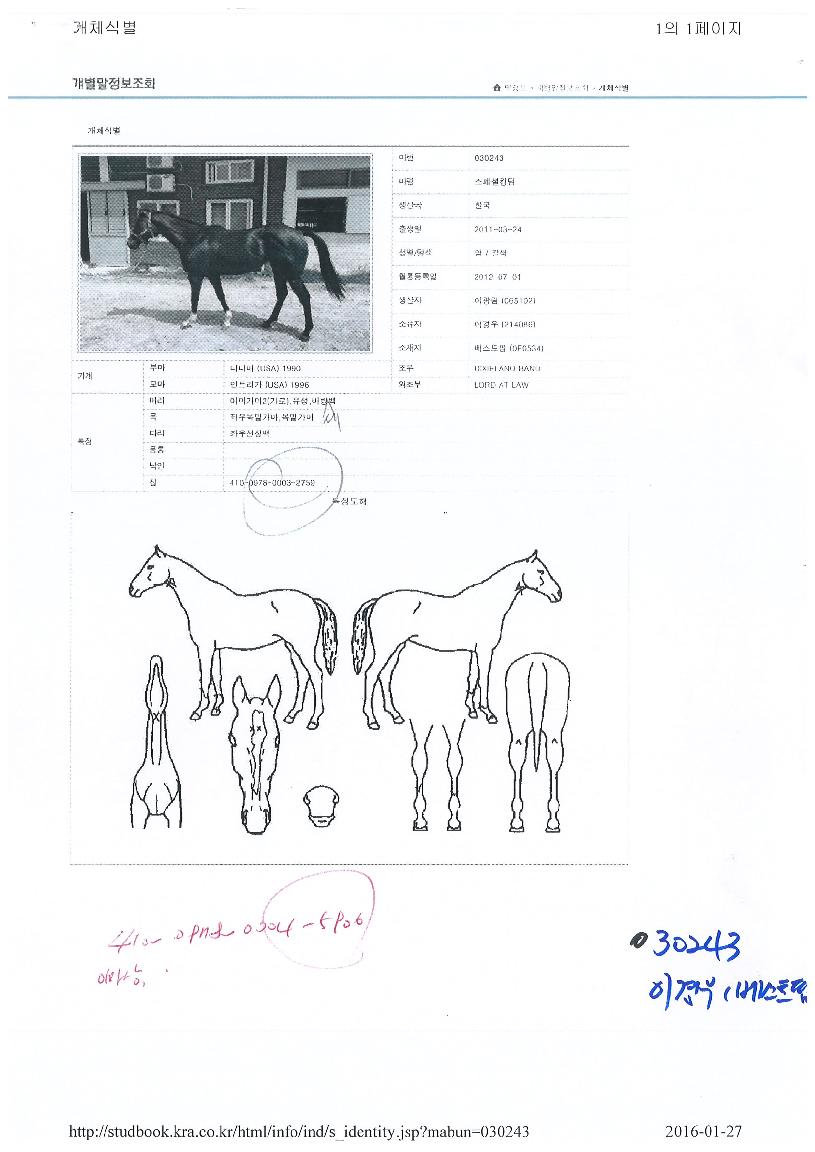 개체식별 1의 1페이지
개별말정보조회
개체식별
개체식별
마번 030243
마명 스페셜킹덤
생산국 한국
출생일 2011-03-24
성별/모색
혈통등록일 2012-07-01
생산자 (065102)
소유자 이경우 (214086)
소재지 베스트팜 (0F0534)
가계 부마 (USA) 1990 조부 DIXIELAND BAND
모마 (USA) 1996 외조부 LORD AT LAW
특징 머리 이마가마2(가로),유성,비량백
목 좌우목밑가마,목밑가마
다리
몸통
낙인
칩 410-0978-0003-2759
특징도해
0304-5906
030243
이경우 (베스트팜
http://studbook.kra.co.kr/html/info/ind/s_identity.jsp?mabun=030243 2016-01-27